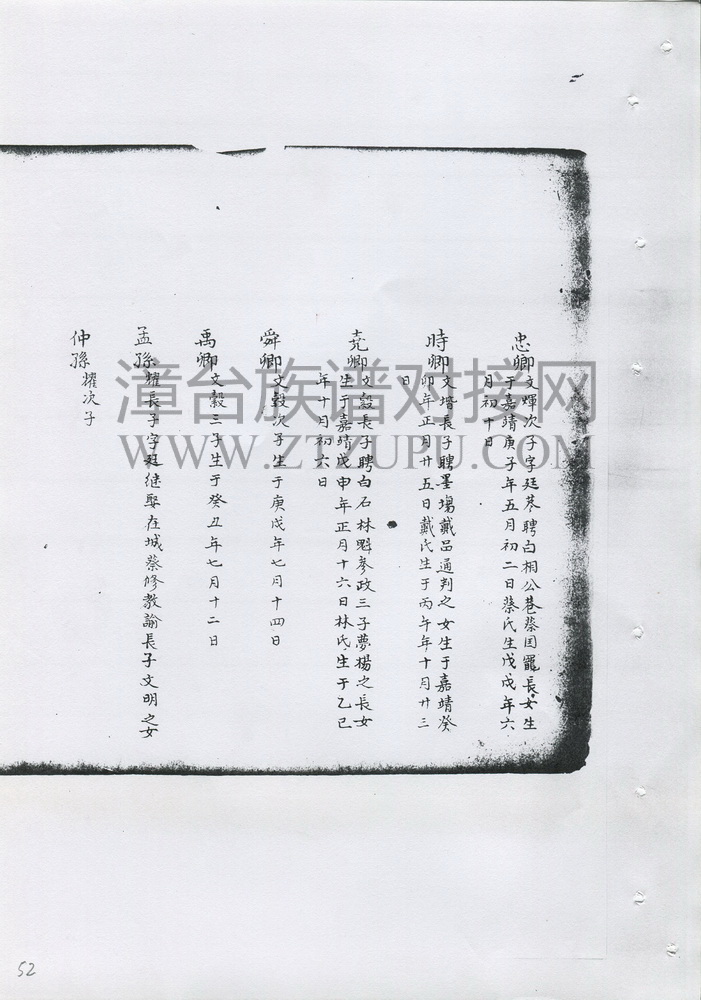 忠卿文煇次子字廷棻聘白相公巷蔡国寵長女生
于嘉靖庚子年五月初二日蔡氏生戊戌年六
月初十日
時卿文塔長子聘墨場戴品通判之女生于嘉靖癸
卯年正月廿五日戴氏生于丙午年十月廿三
日
堯卿文毅長子聘白石林魁參政三子夢楊之長女
生于嘉靖戊申年正月十六日林氏生于乙巳
年十月初六日
舜卿文毅次子生于庚戌年七月十四日
禹卿文毅三子生于癸丑年七月十二日
孟孫耀長子字廷继娶在城蔡修教諭長子文明之女
仲孫耀次子
漳台族谱对接网
WWW.ZTZUPU.COM
52